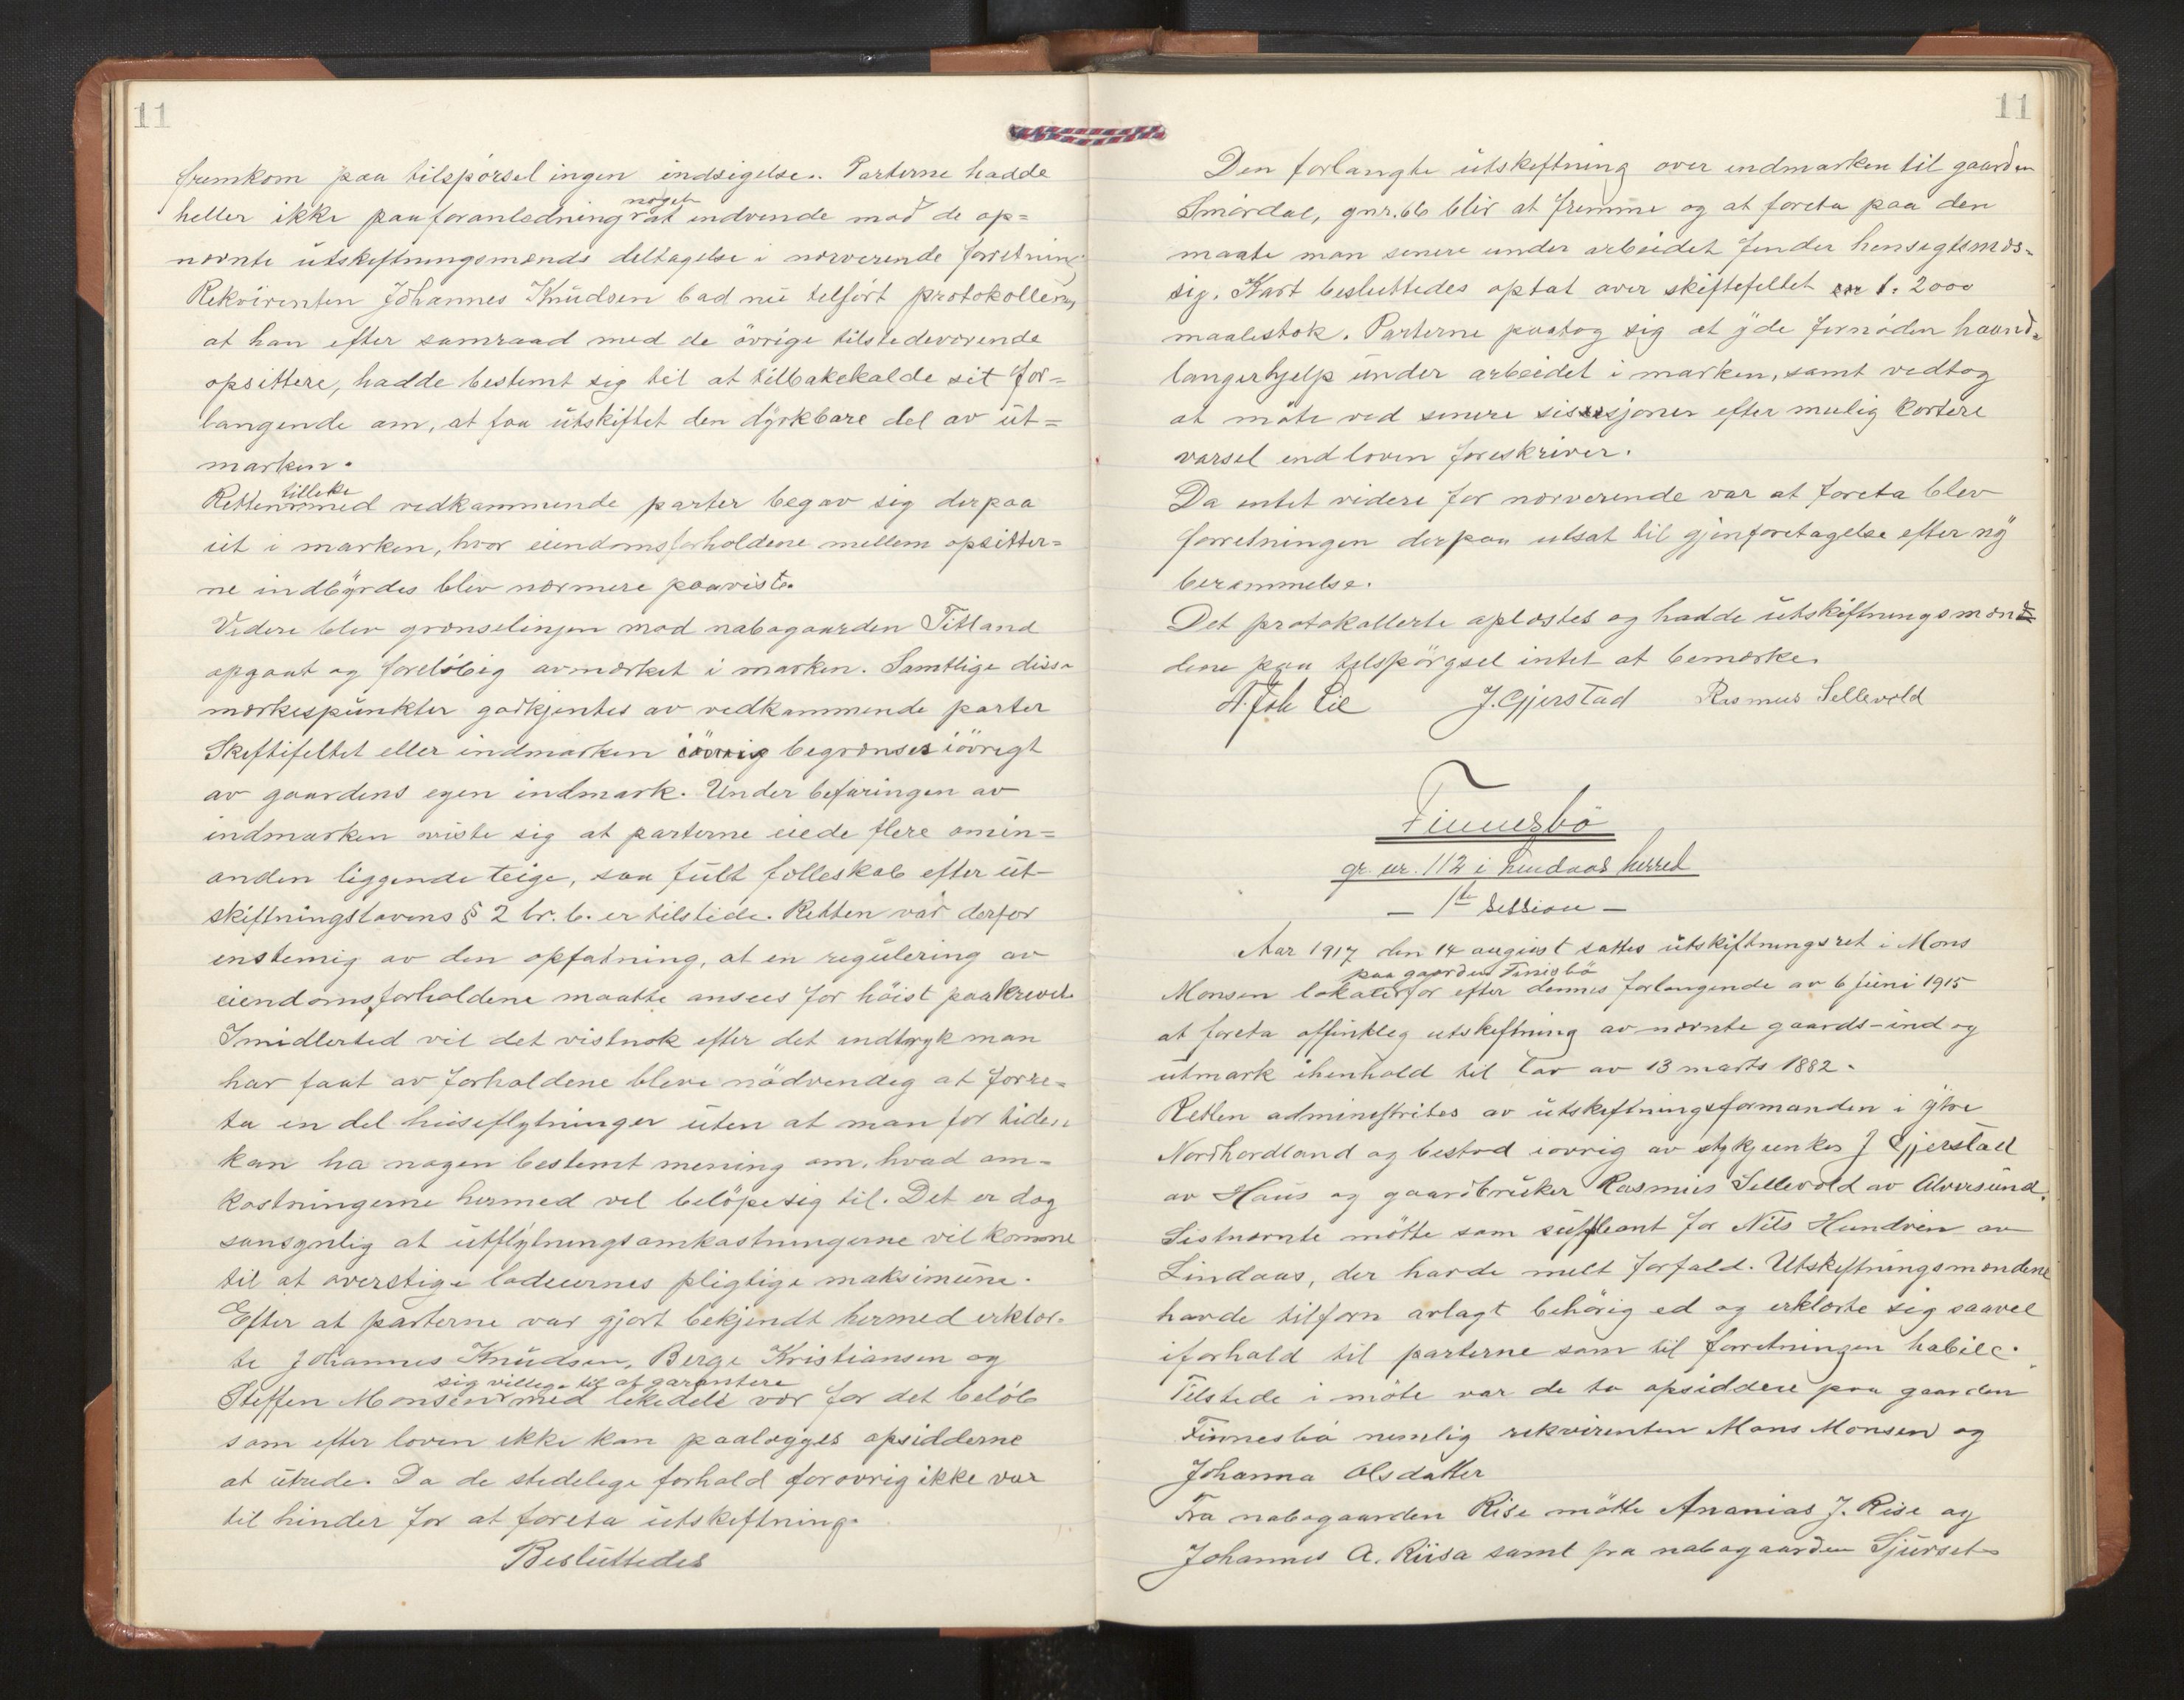 11
fremkom paa tilspørsel ingen indsigelse. Parterne hadde
heller ikke paa foranledning noget at indvende mod de op=
nævnte utskiftningsmænds deltagelse i nærværende forretning
Rekvirenten Johannes Knudsen bad nu tilført protokollen,
at han efter samraad med de øvrige tilstedeværende
opsittere, hadde bestemt sig til at tilbakekalde sit for=
langende om, at faa utskiftet den dyrkbare del av ut=
marken.
Retten tilleke med vedkommende parter begav sig derpaa
ut i marken, hvor eiendomsforholdene mellem opsitter=
ne indbyrdes blev nærmere paavist.
Videre blev grænselinjen mod nabogaarden Titland
opgaat og foreløbig avmærket i marken. Samtlige disse
merkespunkter godkjentes av vedkommende parter
Skiftifeltet eller indmarken begrænses iøvrigt
av gaardens egen indmark. Under befaringen av
indmarken viste sig at parterne eiede flere omin=
anden liggende teige, saa fult fælleskab efter ut-
skiftningslovens § 2 br. b. er tilstede. Retten var derfor
enstemig av den opfatning, at en regulering av
eiendomsforholdene maatte ansees for høist paakrevet.
Imidlerted vil det vistnok efter det indtryk man
har faat av forholdene bleve nødvendig at forre=
ta en del huseflytninger uten at man for tiden
kan ha nogen bestemt mening om, hvad om=
kostningerne hermed vil beløpe sig til. Det er dog
sansynlig at utflytningsomkostningerne vil komme
til at overstige lodeiernes pligtige maksimum.
Efter at parterne var gjort bekjendt hermed erklær=
te Johannes Knudsen, Berge Kristiansen og
Steffen Monsen sig villege til at garantere med likedele vær for det beløb
som efter loven ikke kan paalægges opsidderne
at utrede. Da de stedelege forhold forøvrig ikke var
til hinder for at foreta utskiftning.
Besluttedes
11
Den forlangte utskiftning over indmarken til gaarden
Smørdal, gnr. 66 blir at fremme og at foreta paa den
maate man senere under arbeidet finder hensigtsmæs=
sig. Kart besluttedes optat over skiftefeltet 1:2000
maalestok. Parterne paatog sig at yde fornøden haand=
langerhjelp under arbeidet i marken, samt vedtog
at møte ved senere sissesjoner efter mulig kortere
varsel end loven foreskriver.
Da intet videre for nærværende var at foreta blev
forretningen derpaa utsat til gjenforetagelse efter ny
berammelse.
Det protokollerte oplæstes og hadde utskiftningsmæn=
dene paa tilspørgsel intet at bemærke.
Joh Lie J. Gjerstad Rasmus Sellevold
Finnesbø
gr. nr. 112 i Lindaas herred
- 1te Session -
Aar 1917 den 14 august sattes utskiftningsret i Mons
Monsen lokaler paa gaarden Finisbø for efter dennes forlangende av 6 juni 1915
at foreta offintleg utskiftning av nævnte gaards-ind og
utmark ihenhold til lov av 13 marts 1882.
Retten administrites av utskiftningsformanden i ytre
Nordhordland og bestod iøvrig av stykjunker J Gjerstad
av Haus og gaardbruker Rasmus Sellevold av Alversund.
Sistnævnte møtte som supleant for Nils Hundvin av
Lindaas, der havde melt forfald. Utskiftningsmændene
havde tilforn avlagt behørig ed og erklærte sig saavel
iforhold til parterne som til forretningen habile.
Tilstede i møte var de to opsiddere paa gaarden
Finnesbø nemlig rekvirenten Mons Monsen og
Johanna Olsdatter
Fra nabogaarden Rise møtte Ananias J. Rise og
Johannes A. Riisa samt fra nabogaarden Sjurset